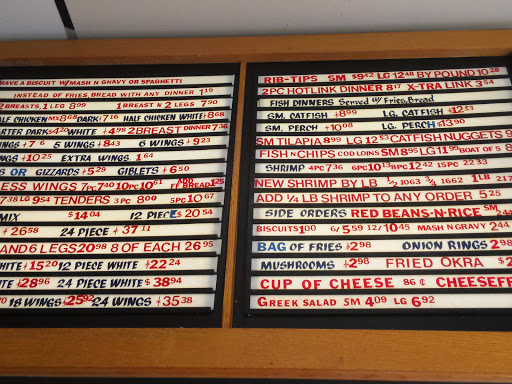 HAVE A BISCUIT W/MASH N GRAVY OR SPAGHETTI
INSTEAD OF FRIES, BREAD WITH ANY DINNER 1.19
2 BREASTS, 1 LEG 8.99 1 BREAST N 2 LEGS 7.90
HALF CHICKEN MX 8.68 DARK 7.16 HALF CHICKEN WHITE +8.68
ARTER DARK $4.20 WHITE +4.98 2 BREAST DINNER 7.36
INGS +7 6 WINGS +8.43 6 WINGS +9.23
NGS +10.25 EXTRA WINGS 1.64
S OR GIZZARDS +5.29 GIBLETS +6.50
LESS WINGS 7PC 7.40 10PC 10.61 ADD FF/BREAD 1.25
7.38 LG 9.54 TENDERS 3PC 8.00 5PC 10.67
MIX $14.04 12 PIECE $20.54
+26.58 24 PIECE +37.11
AND 6 LEGS 20.98 8 OF EACH 26.95
HITE +15.20 12 PIECE WHITE +22.24
ITE +28.96 24 PIECE WHITE $38.94
70 18 WINGS +25.92 24 WINGS +35.38
RIB-TIPS SM $9.42 LG 12.48 BY POUND 10.28
2PC HOTLINK DINNER 8.17 X-TRA LINK 3.54
FISH DINNERS Served w/ Fries, Bread
SM. CATFISH +8.99 LG. CATFISH +12.53
SM. PERCH +10.08 LG. PERCH +13.90
SM TILAPIA 8.99 LG 12.53 CATFISH NUGGETS 9
FISH N CHIPS COD LOINS SM 8.95 LG 11.99 BOAT OF 5 8
SHRIMP 4PC 7.36 6PC 10.13 8PC 12.42 15PC 22.33
NEW SHRIMP BY LB 1/2 10.63 3/4 16.62 1LB 21
ADD 1/4 LB SHRIMP TO ANY ORDER 5.25
SIDE ORDERS RED BEANS-N-RICE SM
BISCUITS 1.00 6/ 5.59 12/ 10.45 MASH N GRAVY 2.44
BAG OF FRIES +2.98 ONION RINGS 2.98
MUSHROOMS +2.98 FRIED OKRA $2
CUP OF CHEESE 86¢ CHEESEFR
GREEK SALAD SM 4.09 LG 6.92